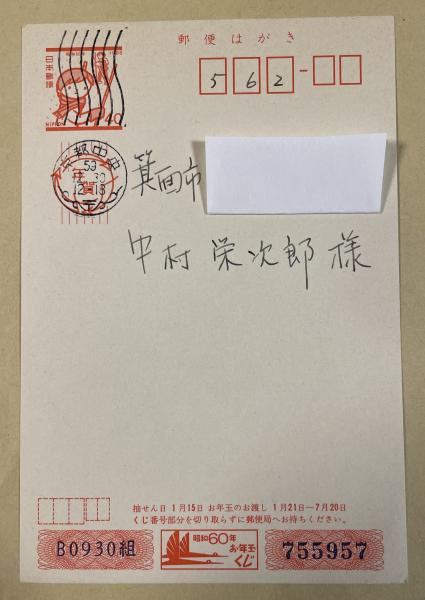 郵便はがき
562-
日本郵便
40
NIPPON
京都中央
59
12.30
12-18
年賀
箕面市
中村栄次郎様
抽せん日 1月15日 お年玉のお渡し 1月21日—7月20日
くじ番号部分を切り取らずに郵便局へお持ちください。
B0930組
昭和60年
お年玉
くじ
755957